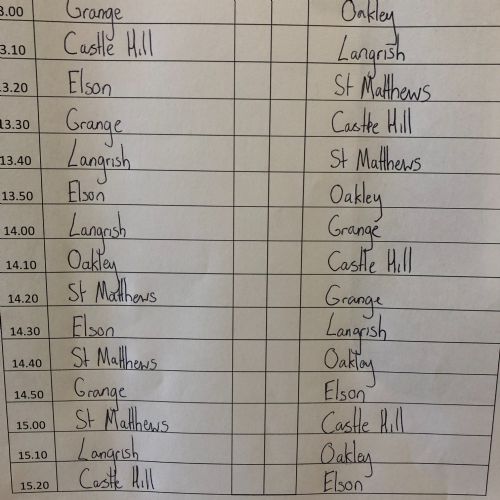 3.00 Grange Oakley
3.10 Castle Hill Langrish
13.20 Elson St Matthews
13.30 Grange Castle Hill
13.40 Langrish St Matthews
13.50 Elson Oakley
14.00 Langrish Grange
14.10 Oakley Castle Hill
14.20 St Matthews Grange
14.30 Elson Langrish
14.40 St Matthews Oakley
14.50 Grange Elson
15.00 St Matthews Castle Hill
15.10 Langrish Oakley
15.20 Castle Hill Elson